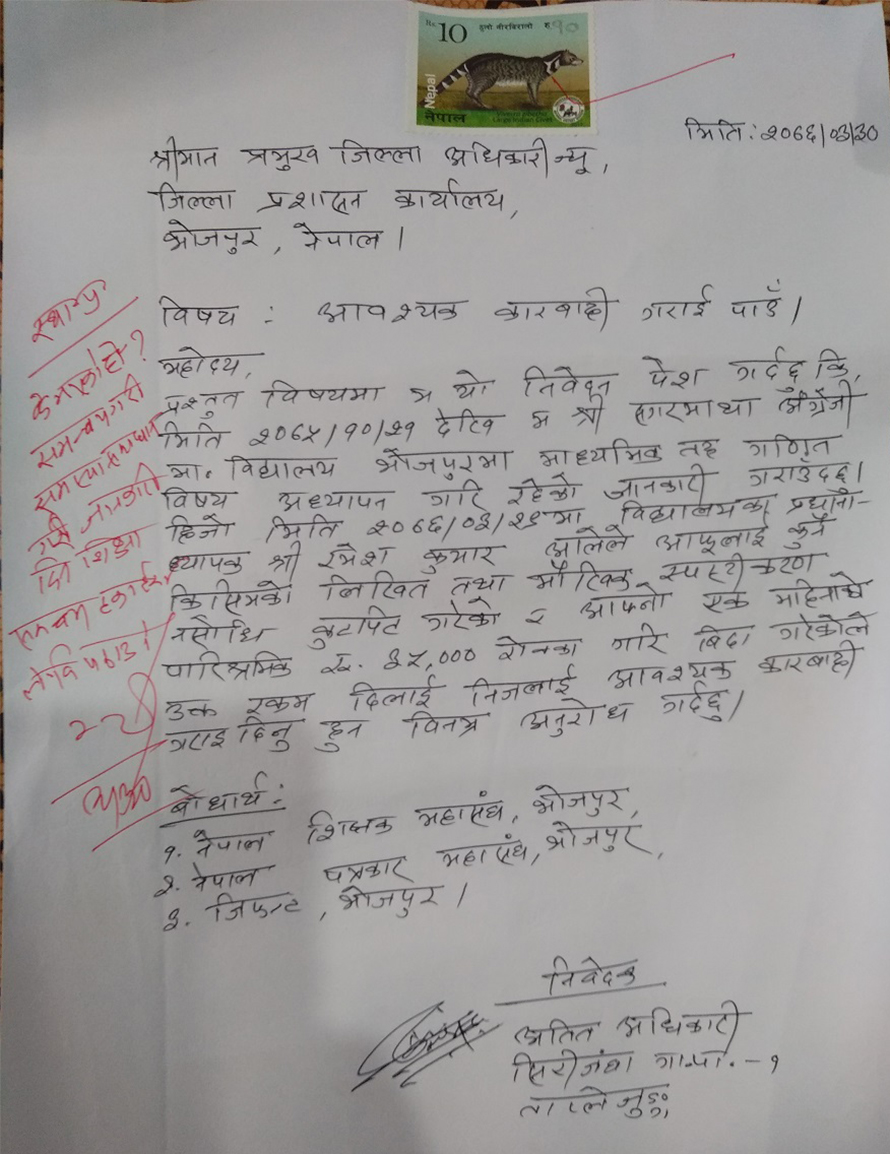 Rs. 10
ठूलो निरबिरालो रु १०
Nepal
नेपाल
Large Indian Civet
मिति : २०७६/०३/३०
श्रीमान प्रमुख जिल्ला अधिकारी ज्यू,
जिल्ला प्रशासन कार्यालय,
भोजपुर, नेपाल ।
विषय : आवश्यक कारबाही गराई पाउँ ।
महोदय,
प्रस्तुत विषयमा म यो निवेदन पेश गर्दछु कि,
मिति २०७५/१०/२१ देखि म श्री सगरमाथा अंग्रेजी
मा. विद्यालय भोजपुरमा माध्यमिक तह गणित
विषय अध्यापन गरि रहेको जानकारी गराउँदछु ।
हिजो मिति २०७६/०३/२९ मा विद्यालयका प्रधाना-
ध्यापक श्री रमेश कुमार ओलिले आफूलाई कुनै
किसिमको लिखित तथा मौखिक स्पष्टीकरण
नसोधि कुटपिट गरेको र आफ्नो एक महिनाको
पारिश्रमिक रु. ३५,००० रोक्का गरि बिदा गरेकोले
उक्त रकम दिलाई निजलाई आवश्यक कारबाही
गराइ दिनु हुन विनम्र अनुरोध गर्दछु ।
बोधार्थ :
१. नेपाल शिक्षक महासंघ, भोजपुर,
२. नेपाल पत्रकार महासंघ, भोजपुर,
३. जिफन्ट, भोजपुर ।
निवेदक
अतित अधिकारी
सिरीजंघा गा.पा. - १
ताप्लेजुङ्ग
के भएको हो ?
समन्वय गरी
समस्या समाधान
गरी जानकारी
दिन शिक्षा